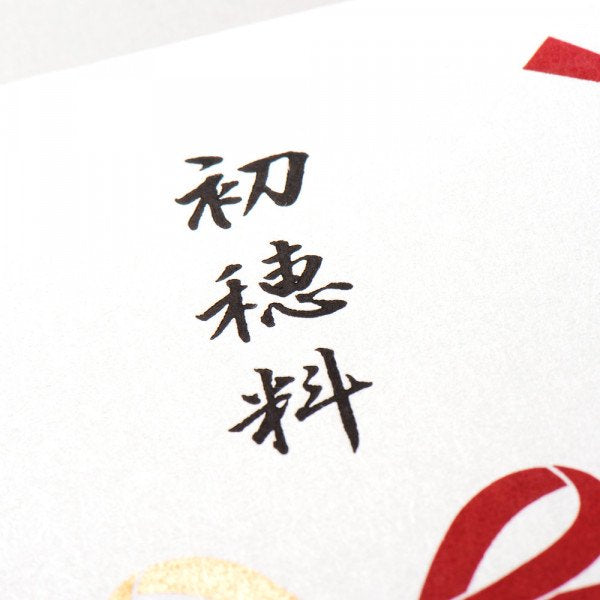 初穂料